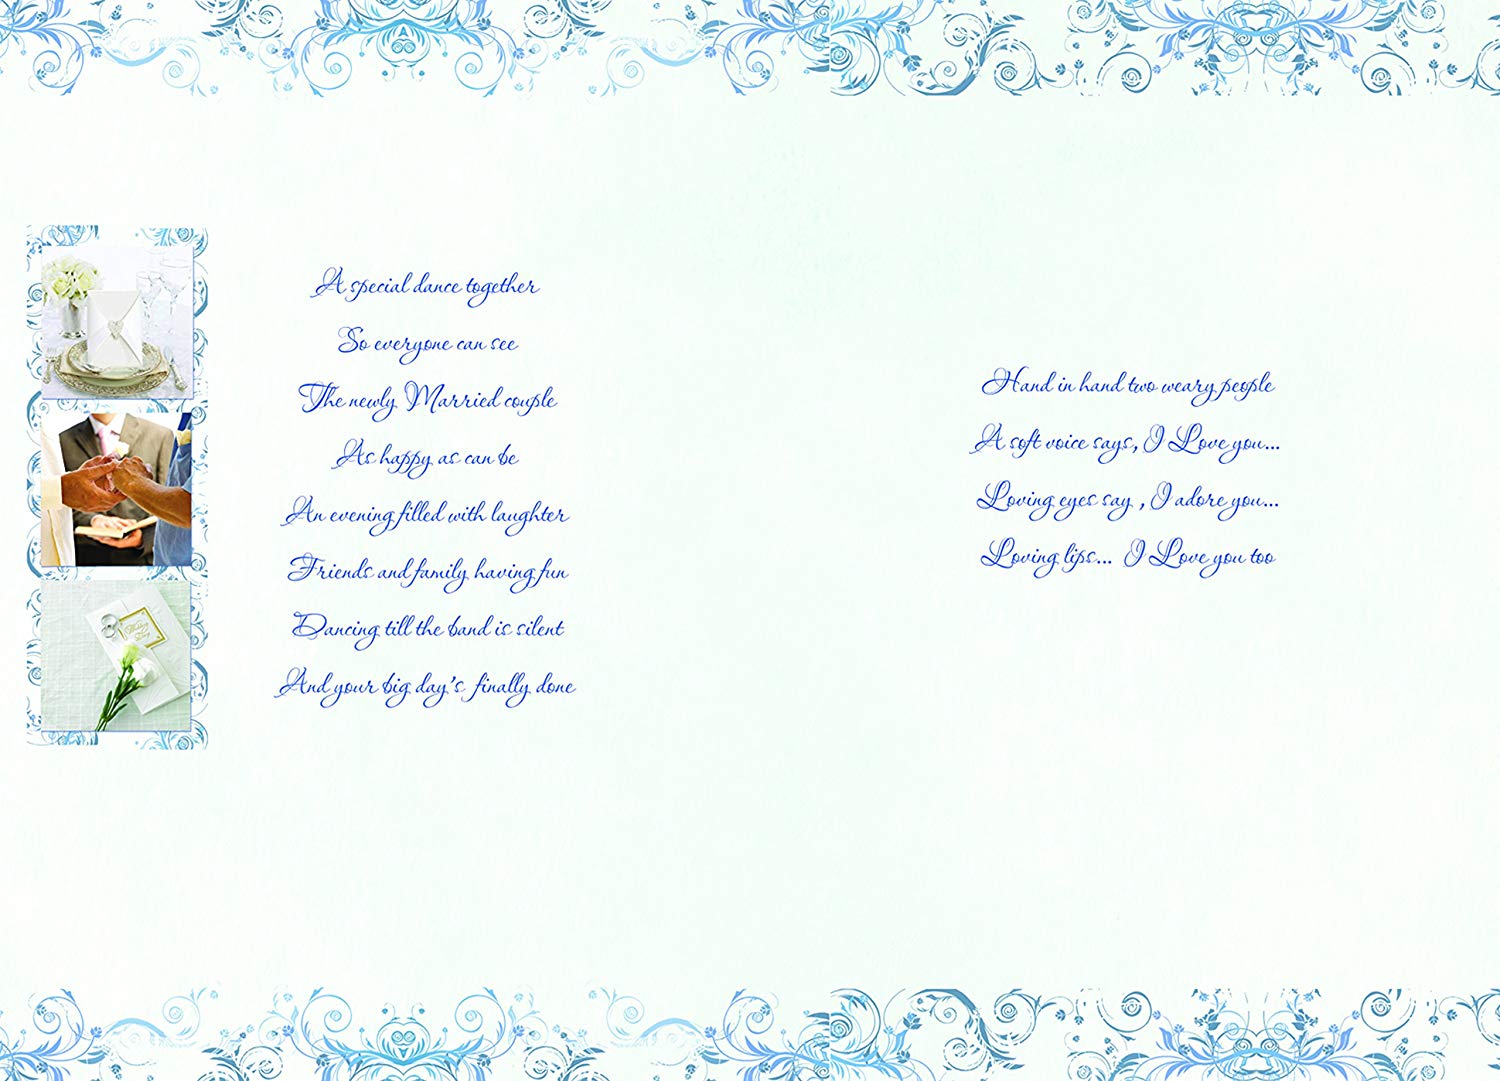 Wedding
Day
A special dance together
So everyone can see
The newly Married couple
As happy as can be
An evening filled with laughter
Friends and family having fun
Dancing till the band is silent
And your big day's finally done
Hand in hand two weary people
A soft voice says, I Love you...
Loving eyes say , I adore you...
Loving lips... I Love you too